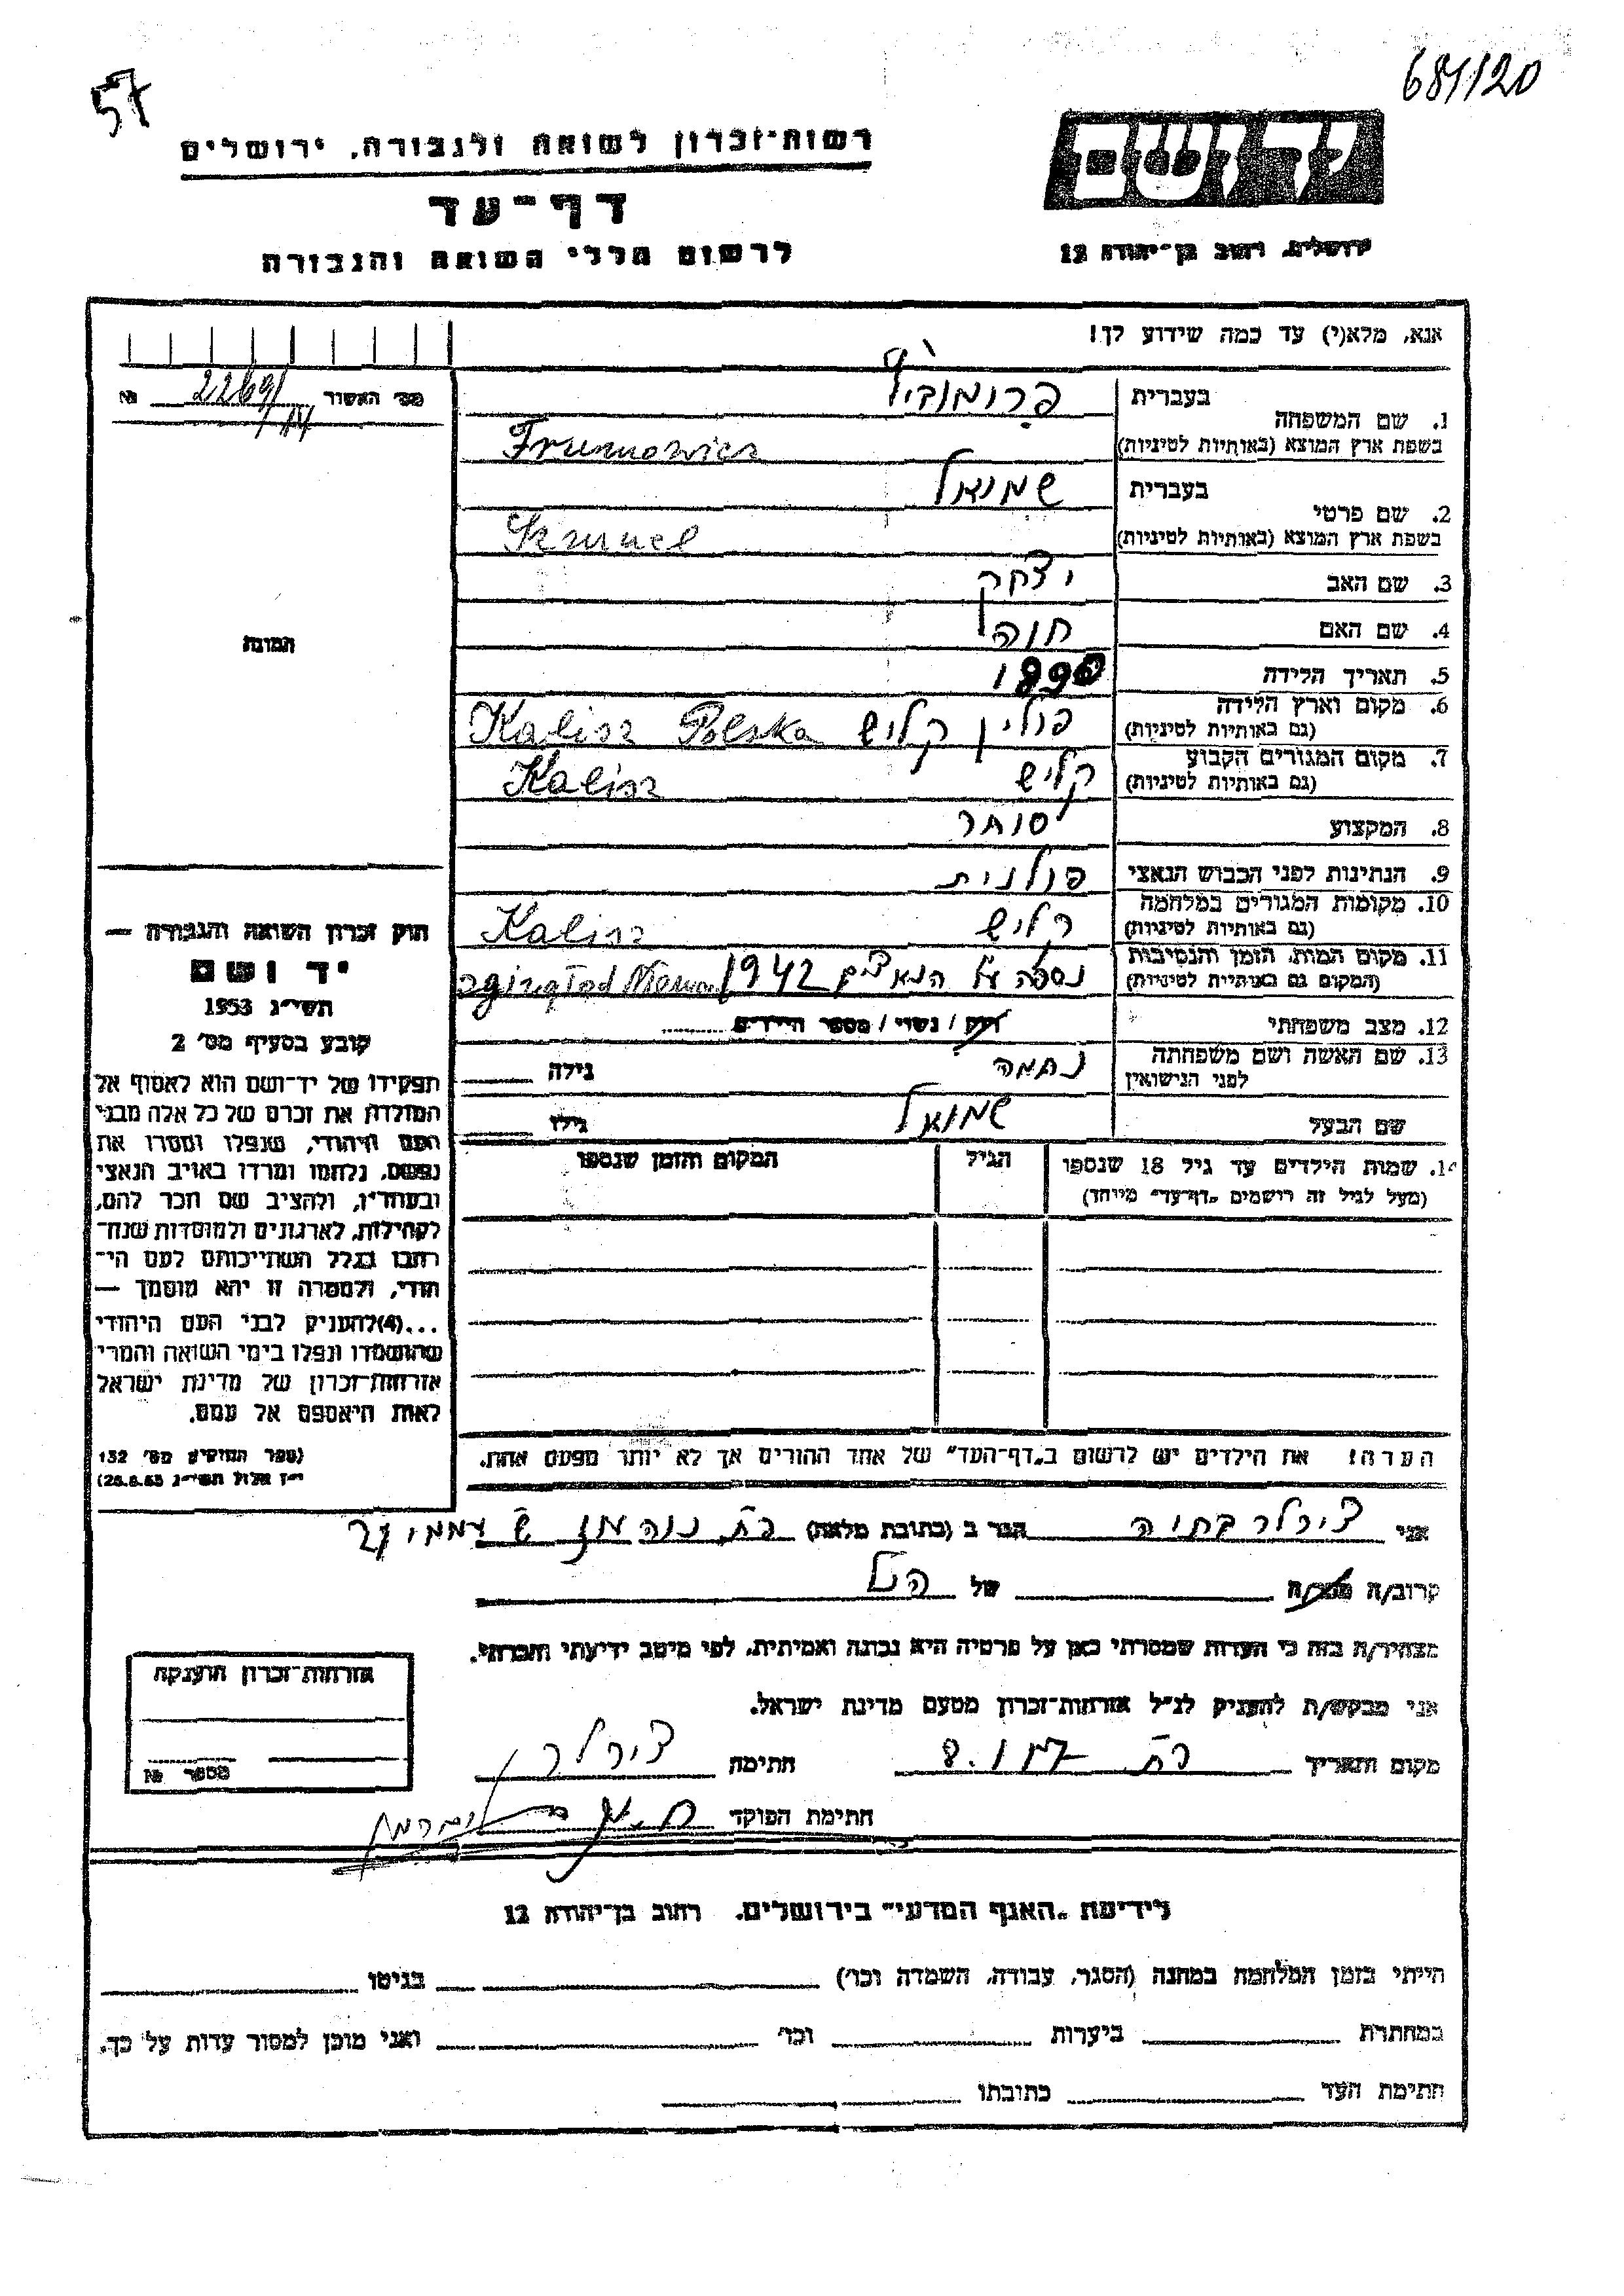 57
681/120
יד ושם
רשות־זכרון לשואה ולגבורה, ירושלים
דף־עד
לרשום חללי השואה והגבורה
ירושלים, רחוב בן־יהודה 12
אנא, מלא(י) עד כמה שידוע לך!
מס׳ האשור 2269/ №
1. שם המשפחה
בעברית פרומוביץ
בשפת ארץ המוצא (באותיות לטיניות) Frumowicz
2. שם פרטי
בעברית שמואל
בשפת ארץ המוצא (באותיות לטיניות) Szmuel
3. שם האב יצחק
4. שם האם חוה
5. תאריך הלידה 1890
6. מקום וארץ הלידה
(גם באותיות לטיניות) פולין קליש Kalisz Polska
7. מקום המגורים הקבוע
(גם באותיות לטיניות) קליש Kalisz
8. המקצוע סוחר
9. הנתינות לפני הכבוש הנאצי פולנית
10. מקומות המגורים במלחמה
(גם באותיות לטיניות) קליש Kalisz
11. מקום המות, הזמן והנסיבות
(המקום גם באותיות לטיניות) נספה ע״י הנאצים 1942 zginął od
12. מצב משפחתי רווק / נשוי / מספר הילדים
13. שם האשה ושם משפחתה
לפני הנישואין נחמה גילה
שם הבעל שמואל גילו
14. שמות הילדים עד גיל 18 שנספו הגיל המקום והזמן שנספו
(מעל לגיל זה רושמים „דף־עד״ מיוחד)
הערה! את הילדים יש לרשום ב„דף־העד״ של אחד ההורים אך לא יותר מפעם אחת.
תמונה
חוק זכרון השואה והגבורה —
יד ושם
תשי״ג 1953
קובע בסעיף מס׳ 2
תפקידו של יד־ושם הוא לאסוף אל
המולדת את זכרם של כל אלה מבני
העם היהודי, שנפלו ומסרו את
נפשם, נלחמו ומרדו באויב הנאצי
ובעוזריו, ולהציב שם וזכר להם,
לקהילות, לארגונים ולמוסדות שנח־
רבו בגלל השתייכותם לעם הי־
הודי, ולמטרה זו יהא מוסמך —
...(4) להעניק לבני העם היהודי
שהושמדו ונפלו בימי השואה והמרי
אזרחות־זכרון של מדינת ישראל
לאות היאספם אל עמם.
(ספר החוקים מס׳ 132
י״ז אלול תשי״ג 28.8.53)
אני צירלר בתיה הגר ב (כתובת מלאה)
קרוב/ה מכר/ה של הנ״ל
מצהיר/ה בזה כי העדות שמסרתי כאן על פרטיה היא נכונה ואמיתית, לפי מיטב ידיעתי והכרתי.
אני מבקש/ת להעניק לנ״ל אזרחות־זכרון מטעם מדינת ישראל.
מקום ותאריך חתימה צירלר
חתימת הפוקד
אזרחות־זכרון הוענקה
מספר №
לידיעת „האגף המדעי״ בירושלים, רחוב בן־יהודה 12
הייתי בזמן המלחמה במחנה (הסגר, עבודה, השמדה וכו׳) בגיטו
במחתרת ביערות וכו׳ ואני מוכן למסור עדות על כך.
חתימת העד כתובתו